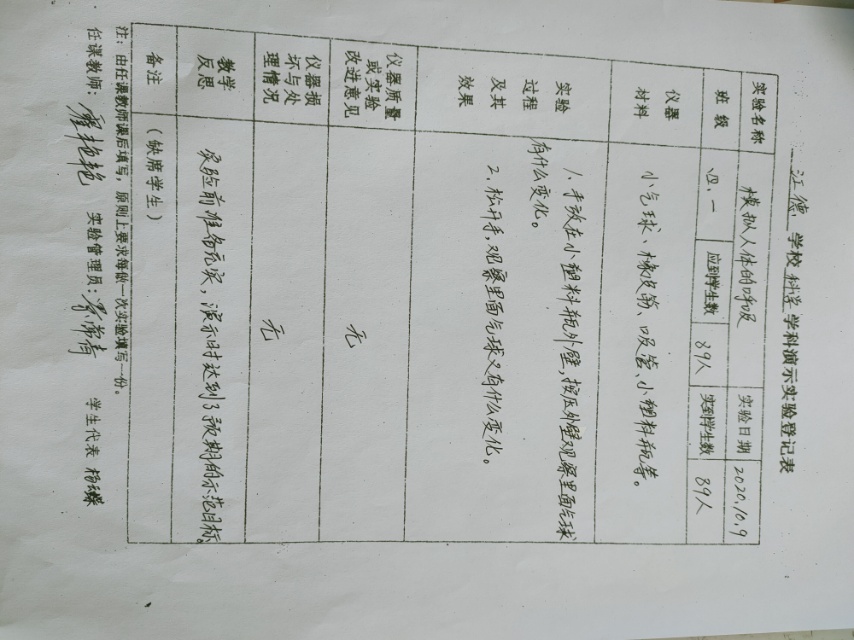 江德 学校 科学 学科演示实验登记表
实验名称 模拟人体的呼吸 实验日期 2020.10.9
班级 四.一 应到学生数 39人 实到学生数 39人
仪器
材料
小气球、橡皮筋、吸管、小塑料瓶等。
实验
过程
及其
效果
1.手放在小塑料瓶外壁,按压外壁观察里面气球
有什么变化。
2.松开手,观察里面气球又有什么变化。
仪器质量
或实验
改进意见
无
仪器损
坏与处
理情况
无
教学
反思
实验前准备充实,演示时达到了预期的示范目标。
备注 (缺席学生)
注:由任课教师课后填写,原则上要求每做一次实验填写一份。
任课教师: 实验管理员: 学生代表